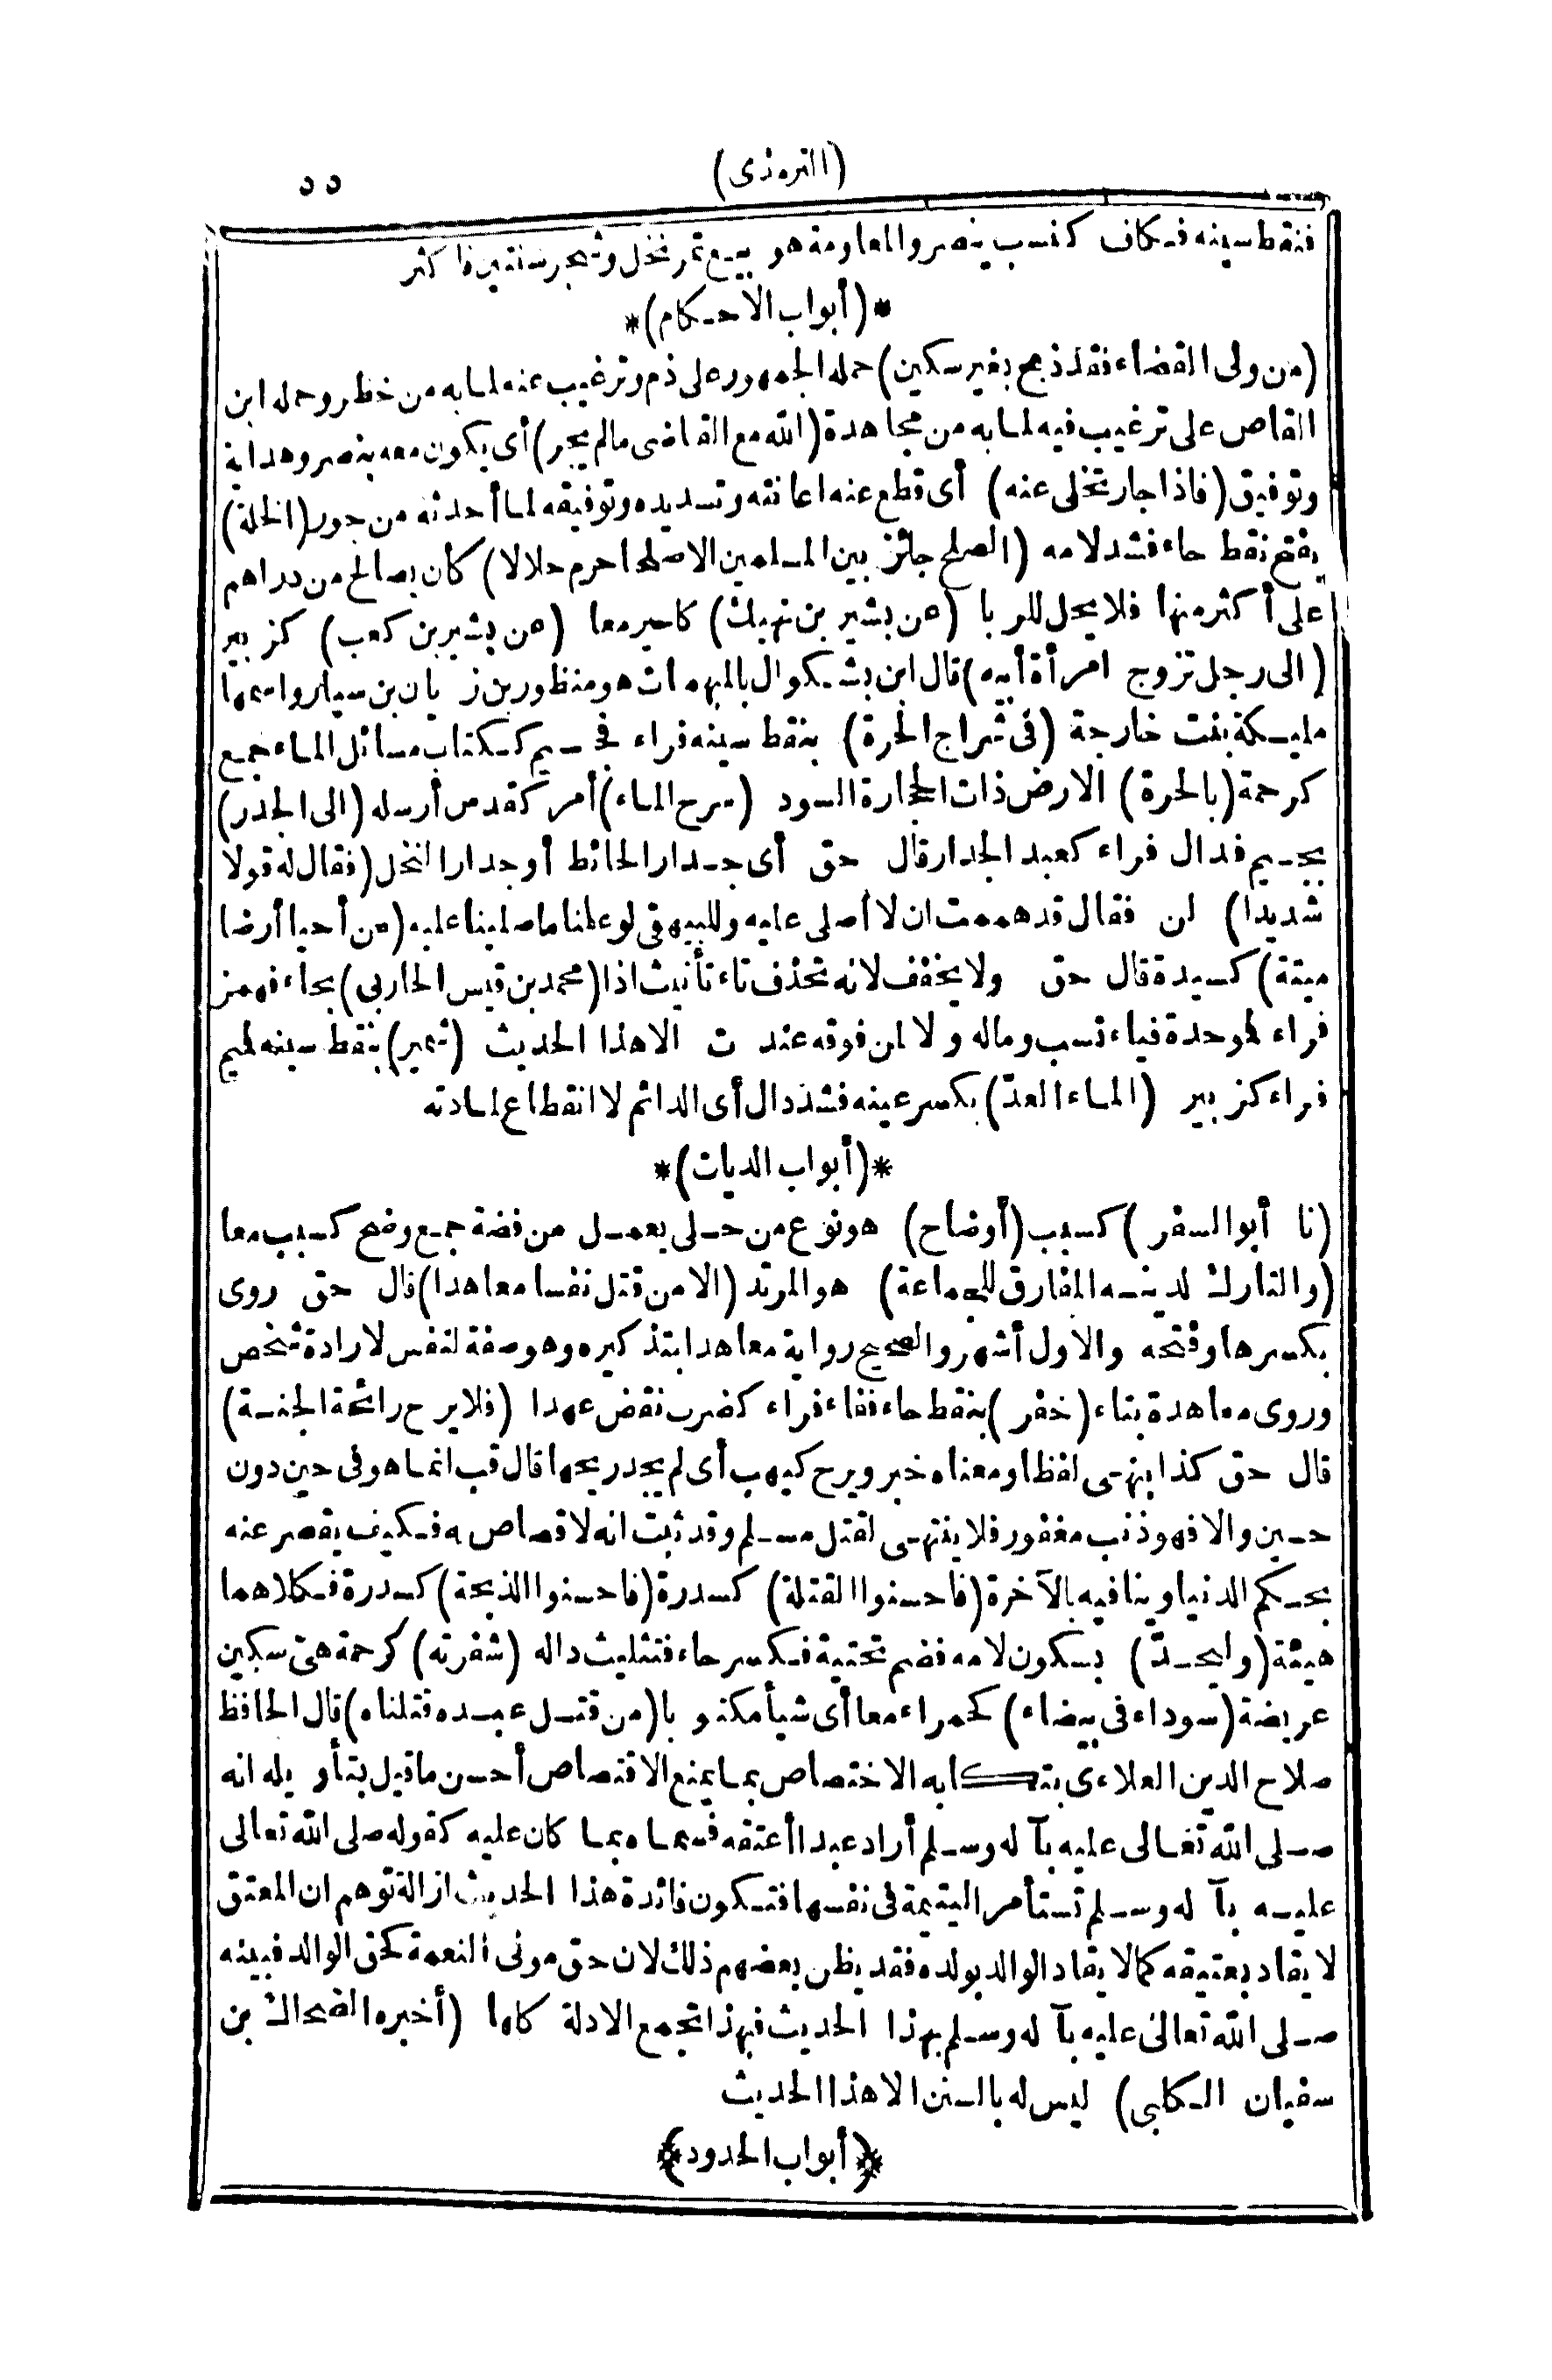 (الترمذى) ٥٥
فنقط سينه فكاف كنسب ينصر والمعاومة هو بيع ثمر نخل وشجر سنتين فا كثر
*(أبواب الاحكام)*
(من ولى القضاء فقد ذبح بغير سكين) حمله الجمهور على ذم وترغيب عنه لما به من خطر وحمله ابن
القاص على ترغيب فيه لما به من مجاهدة (الله مع القاضى مالم يجر) أى يكون معه بنصر وهداية
وتوفيق (فاذا جار تخلى عنه) أى قطع عنه اعانته وتسديده وتوفيقه لما أحدثه من جور (الخلة)
بفتح نقط حاء فشد لامه (الصلح جائز بين المسلمين الاصلحا حرم حلالا) كان يصالح من دراهم
على أكثر منها فلا يحل للربا (عن بشير بن نهيك) كاميرمعا (عن بشير بن كعب) كزبير
(الى رجل تزوج امرأة أبيه) قال ابن بشكوال بالمبهمات هو منظور بن زبان بن سيار واسمها
مليكة بنت خارجة (فى شراج الحرة) بنقط سينه فراء فجيم ككتاب مسائل الماء جمع
كرحمة (بالحرة) الارض ذات الحجارة السود (سرح الماء) أمر كقدس أرسله (الى الجدر)
بجيم فدال فراء كعبد الجدار قال حق أى جدار الحائط أو جدار انخل (فقال له قولا
شديدا) لن فقال قد هممت ان لا أصلى عليه وللبيهقى لو علمنا ما صلينا عليه (من أحيا أرضا
ميتة) كسيدة قال حق ولا يخفف لانه تحذف تاء تأنيث اذا (محمد بن قيس الماربى) بحاء فهمز
فراء فموحدة فياء نسب وماله ولا لمن فوقه عند ت الا هذا الحديث (شمير) بنقط سينه فميم
فراء كزبير (الماء العدّ) بكسر عينه فشد دال أى الدائم لا انقطاع لمادته
*(أبواب الديات)*
(نا أبو السفر) كسبب (أوضاح) هو نوع من حلى يعمل من فضة جمع وضح كسبب معا
(والتارك لدينه المفارق للجماعة) هو المرتد (الا من قتل نفسا معاهدا) قال حق روى
بكسر ها وفتحه والاول أشهر والصحيح رواية معاهدا بتذكيره وهو صفة لنفس لارادة شخص
وروى معاهدة بتاء (خفر) بنقط حاء ففاء فراء كضرب نقض عهدا (فلا يرح رائحة الجنة)
قال حق كذا بنهى لفظا ومعناه خبر ويرح كيهب أى لم يجد ريحها قال قب انما هو فى حين دون
حين والا فهو ذنب مغفور فلا ينتهى لقتل مسلم وقد ثبت انه لا قصاص به فكيف يقصر عنه
بحكم الدنيا وينافيه بالآخرة (فاحسنوا القتلة) كسدرة (فاحسنوا الذبحة) كسدرة فكلاهما
هيئة (وليحدّ) بسكون لامه فضم تحتية فكسر حاء فتثليث داله (شفرته) كرحمة هى سكين
عريضة (سوداء فى بيضاء) كحمراء معا أى شيأ مكتوبا (من قتل عبده قتلناه) قال الحافظ
صلاح الدين العلاءى بتكابه الاختصاص بما يمنع الاقتصاص أحسن ما قيل بتأويله انه
صلى الله تعالى عليه بآله وسلم أراد عبدا أعتقه فسماه بما كان عليه كقوله صلى الله تعالى
عليه بآله وسلم تستأمر اليتيمة فى نفسها فتكون فائدة هذا الحديث ازالة توهم ان المعتق
لا يقاد بعتيقه كما لا يقاد الوالد بولده فقد يظن بعضهم ذلك لان حق مولى النعمة كحق الوالد فبينه
صلى الله تعالى عليه بآله وسلم بهذا الحديث فبهذا تجمع الادلة كلها (أخبره الضحاك بن
سفيان الكلبى) ليس له بالسنن الا هذا الحديث
﴿أبواب الحدود﴾